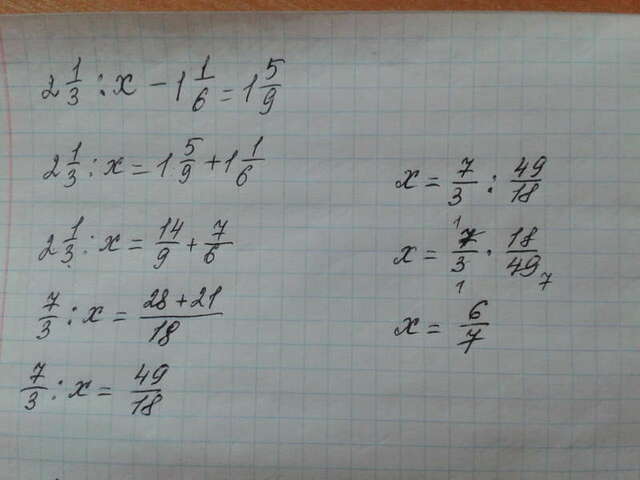 2 1/3 : x - 1 1/6 = 1 5/9
2 1/3 : x = 1 5/9 + 1 1/6
2 1/3 : x = 14/9 + 7/6
7/3 : x = (28 + 21)/18
7/3 : x = 49/18
x = 7/3 : 49/18
x = 7/3 · 18/49
1 1 7
x = 6/7